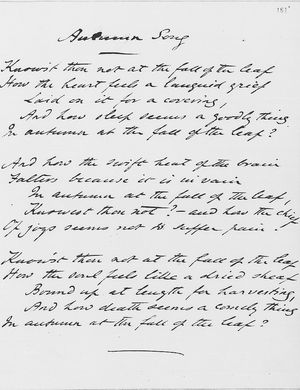 181
Autumn Song
Knowst thou not at the fall of the leaf
How the heart feels a languid grief
Laid on it for a covering,
And how sleep seems a goodly thing
In autumn at the fall of the leaf?
And how the swift beat of the brain
Falters because it is in vain
In autumn at the fall of the leaf,
Knowest thou not? — and how the chief
Of joys seems not to suffer pain?
Knowst thou not at the fall of the leaf
How the soul feels like a dried sheaf
Bound up at length for harvesting,
And how death seems a comely thing
In autumn at the fall of the leaf?